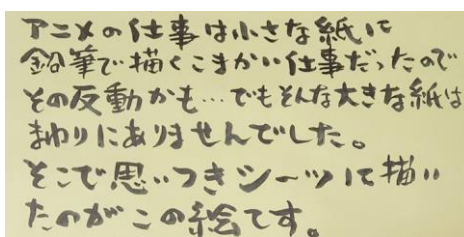 アニメの仕事は小さな紙に
鉛筆で描くこまかい仕事だったので
その反動かも…でもそんな大きな紙は
まわりにありませんでした。
そこで思いつきシーツに描い
たのがこの絵です。